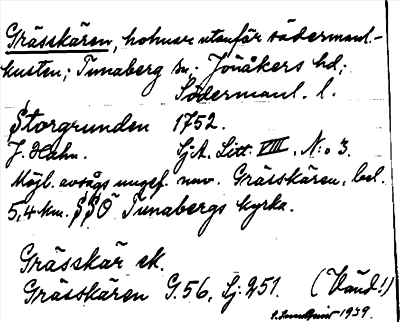 Grässkären, holmar utanför södermanl.-
kusten; Tunaberg sn, Jönåkers hd;
Södermanl. l.
Storgrunden 1752.
J. Hahn. SjA. Litt. VIII, N:o 3.
Möjl. avságs ungef. nuv. Grässkären, bel.
5,4 km. SSO Tunabergs kyrka.
Grässkär ek.
Grässkären G. 56, Sj. 251. (Vänd!)
1939.